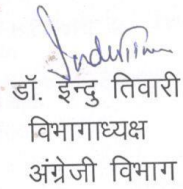 डॉ. इन्दु तिवारी
विभागाध्यक्ष
अंग्रेजी विभाग